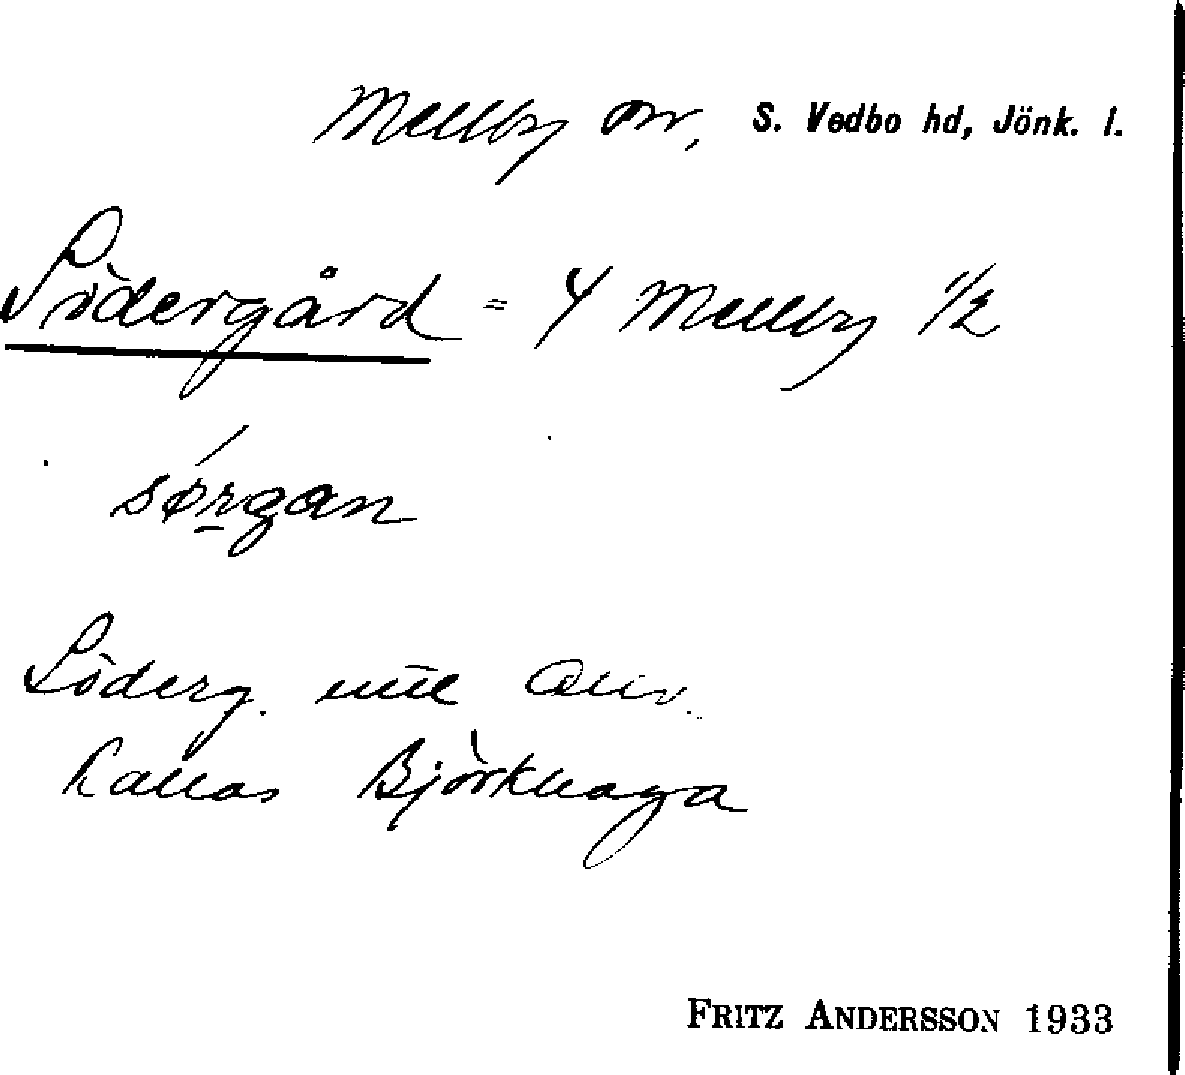 Mellby sn, S. Vedbo hd, Jönk. l.
Södergård = Y Mellby 1/2
sørgan
Söderg.
kallas Björkhaga
FRITZ ANDERSSON 1933